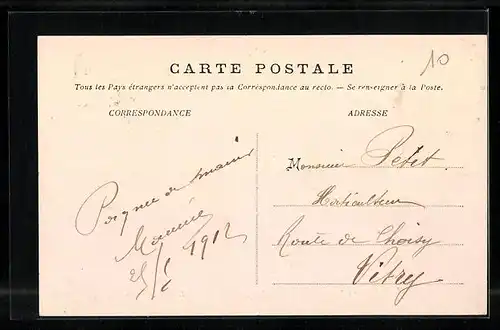 10
CARTE POSTALE
Tous les Pays étrangers n'acceptent pas la Correspondance au recto. — Se renseigner à la Poste.
CORRESPONDANCE
ADRESSE
Poignée de mains
1912
Monsieur Petit
Horticulteur
Route de Choisy
Vitry